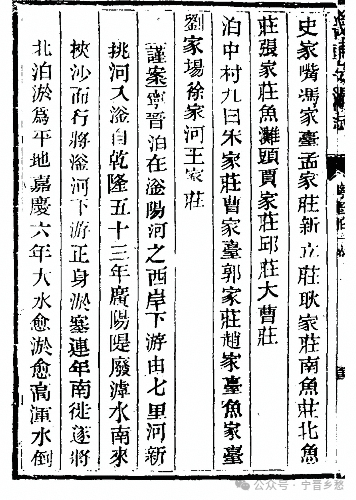 史家嘴馮家臺孟家莊新立莊耿家莊南魚莊北魚
莊張家莊魚灘頭賈家莊邱莊大曹莊
泊中村九曰朱家莊曹家臺郭家莊趙家臺魚家臺
劉家場徐家河王家莊
謹案寧晉泊在滏陽河之西岸下游由七里河新
挑河入滏自乾隆五十三年廣陽隄廢漳水南來
挾沙而行將滏河下游正身淤塞連年南徙遂將
北泊淤爲平地嘉慶六年大水愈淤愈高渾水倒
公众号·宁晋乡愁